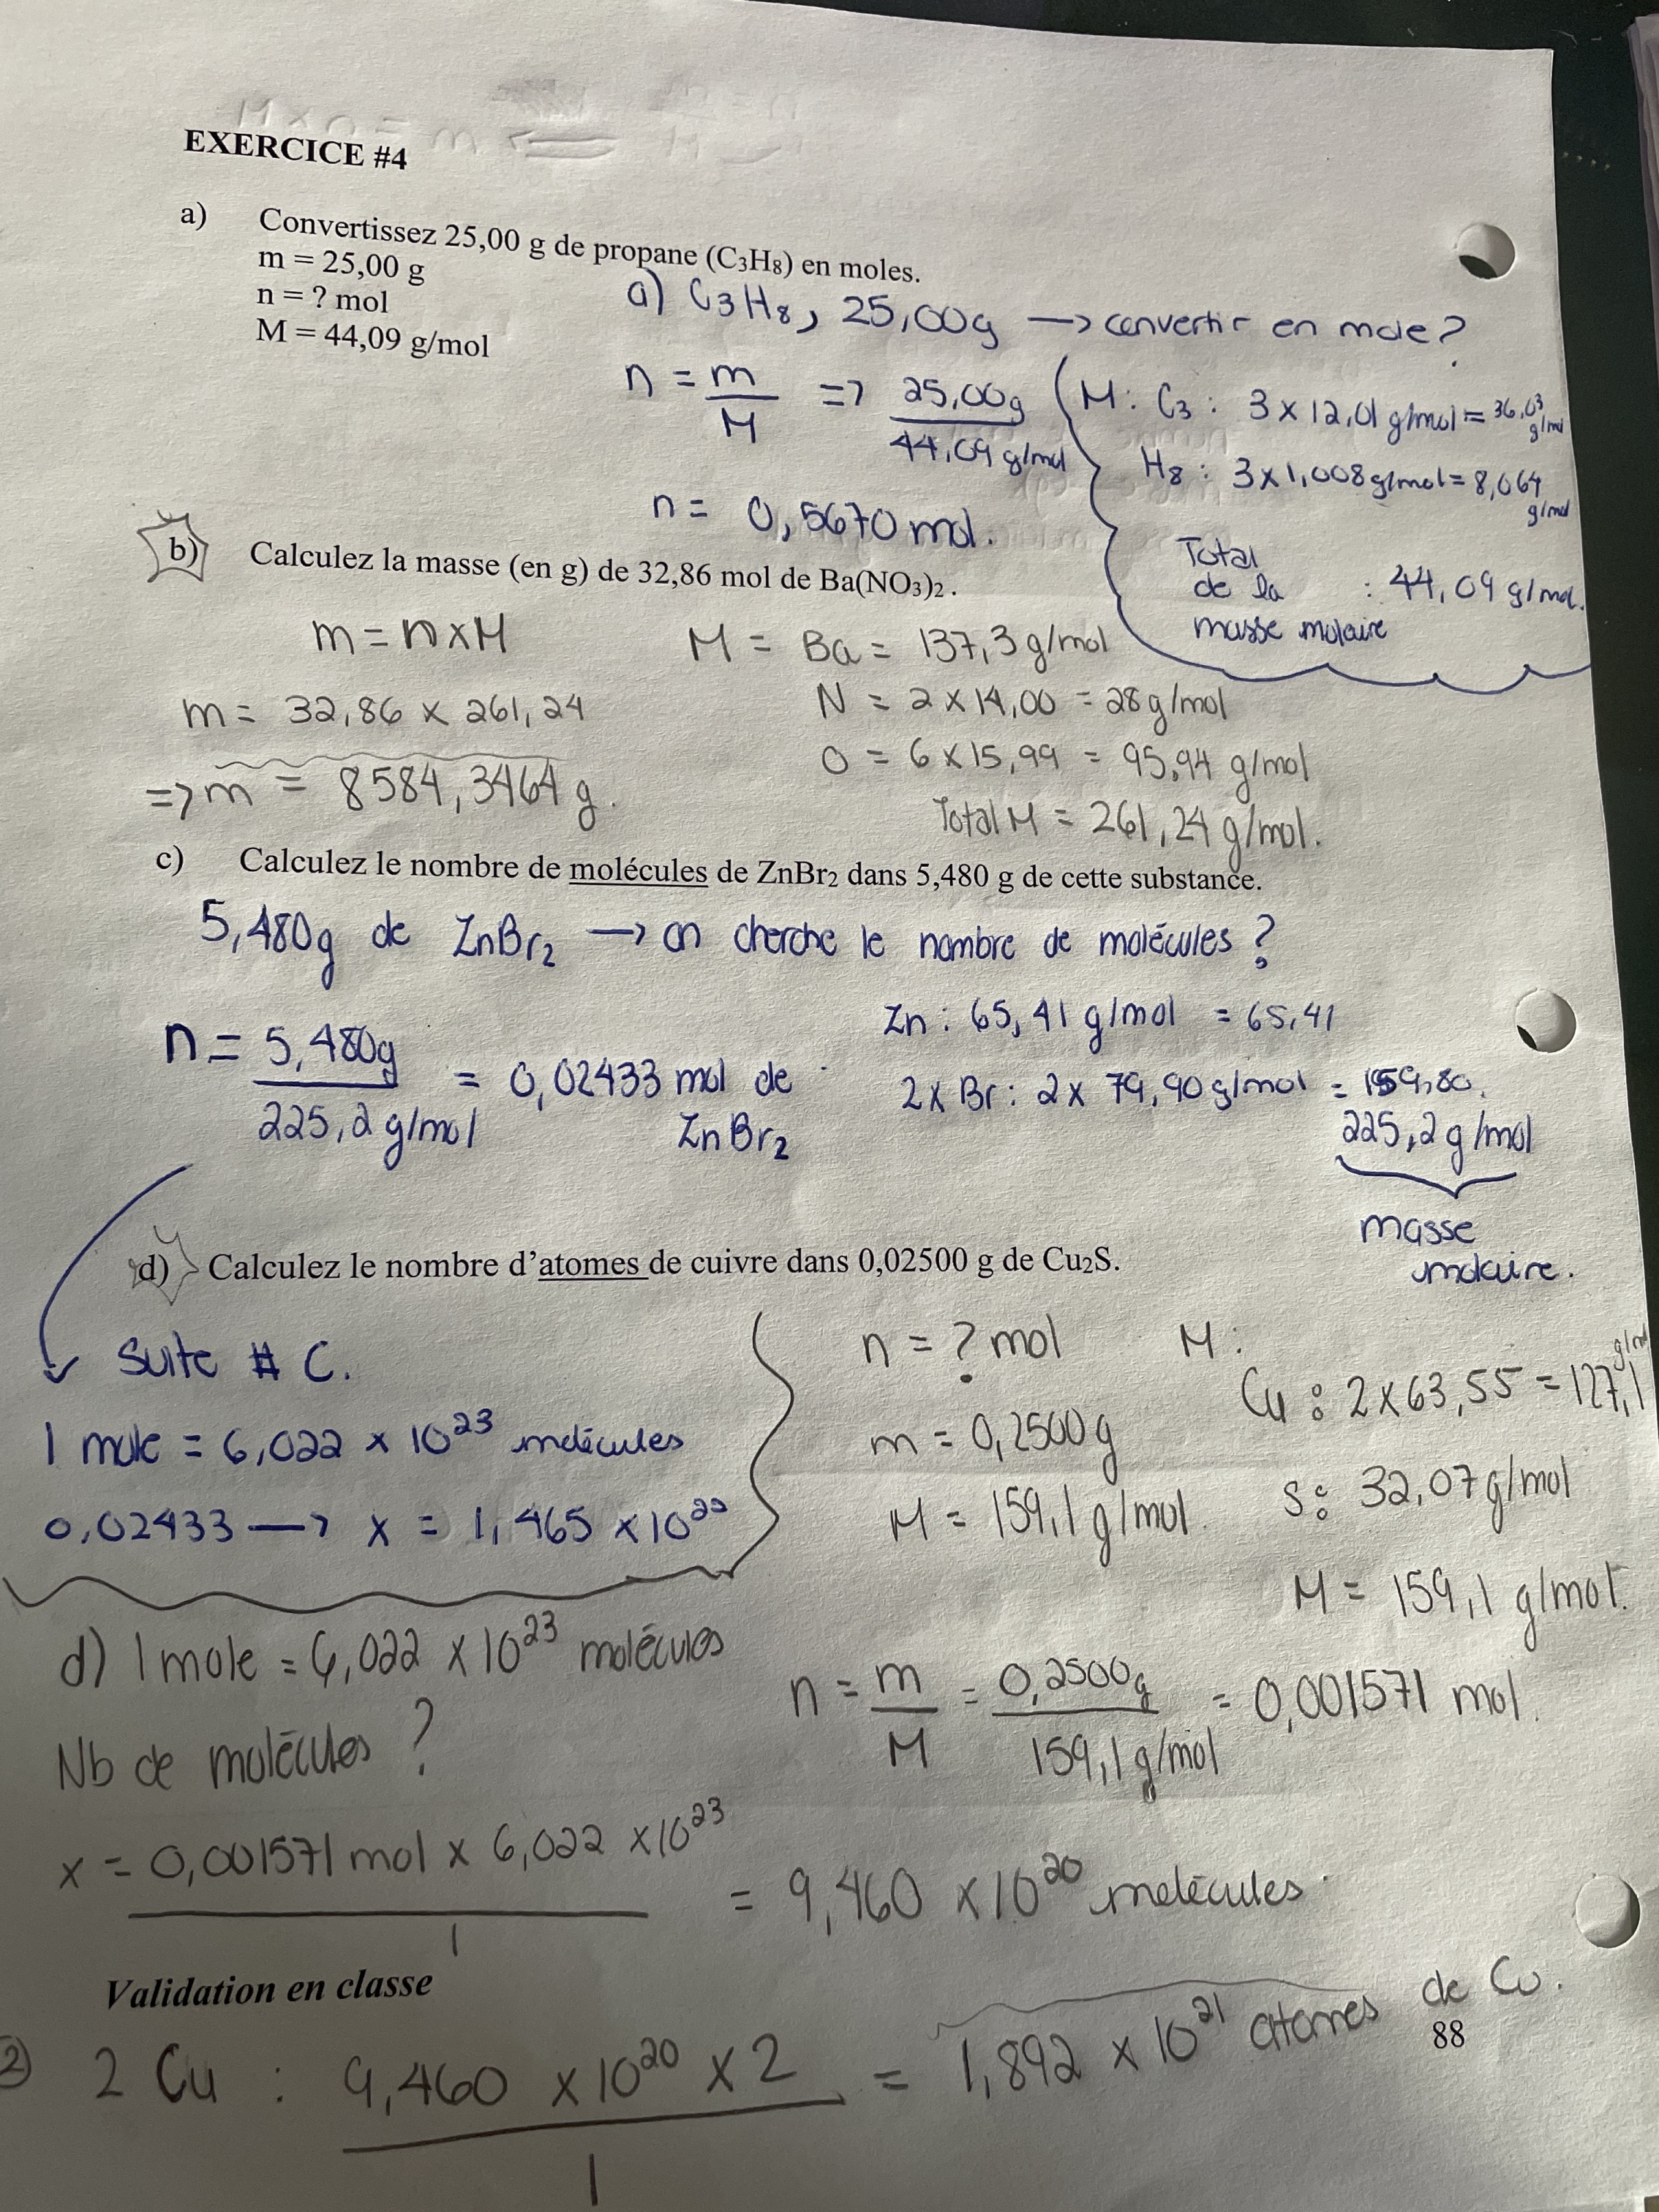 EXERCICE #4
a) Convertissez 25,00 g de propane (C₃H₈) en moles.
m = 25,00 g
n = ? mol
M = 44,09 g/mol
a) C₃H₈, 25,00g → convertir en mole?
n = m/M => 25,00g / 44,09 g/mol
n = 0,5670 mol.
M: C₃ : 3 x 12,01 g/mol = 36,03 g/mol
H₈ : 3 x 1,008 g/mol = 8,064 g/mol
Total
de la : 44,09 g/mol.
masse molaire
b) Calculez la masse (en g) de 32,86 mol de Ba(NO₃)₂.
m = n x M
m = 32,86 x 261,24
=> m = 8584,3464 g.
M = Ba = 137,3 g/mol
N = 2 x 14,00 = 28 g/mol
O = 6 x 15,99 = 95,94 g/mol
Total M = 261,24 g/mol.
c) Calculez le nombre de molécules de ZnBr₂ dans 5,480 g de cette substance.
5,480g de ZnBr₂ → on cherche le nombre de molécules?
n = 5,480g / 225,2 g/mol = 0,02433 mol de
ZnBr₂
Zn : 65,41 g/mol = 65,41
2 x Br : 2 x 79,90 g/mol = 159,80.
225,2 g/mol
masse
molaire.
d) Calculez le nombre d'atomes de cuivre dans 0,02500 g de Cu₂S.
Suite # C.
1 mole = 6,022 x 10²³ molécules
0,02433 → x = 1,465 x 10²²
n = ? mol
m = 0,2500g
M = 159,1 g/mol.
M :
Cu : 2 x 63,55 = 127,1 g/mol
S : 32,07 g/mol
M = 159,1 g/mol.
n = m/M = 0,2500g / 159,1 g/mol = 0,001571 mol.
d) 1 mole = 6,022 x 10²³ molécules
Nb de molécules?
x = 0,001571 mol x 6,022 x 10²³ / 1 = 9,460 x 10²⁰ molécules.
Validation en classe
2) 2 Cu : 9,460 x 10²⁰ x 2 / 1 = 1,892 x 10²¹ atomes de Cu.
88